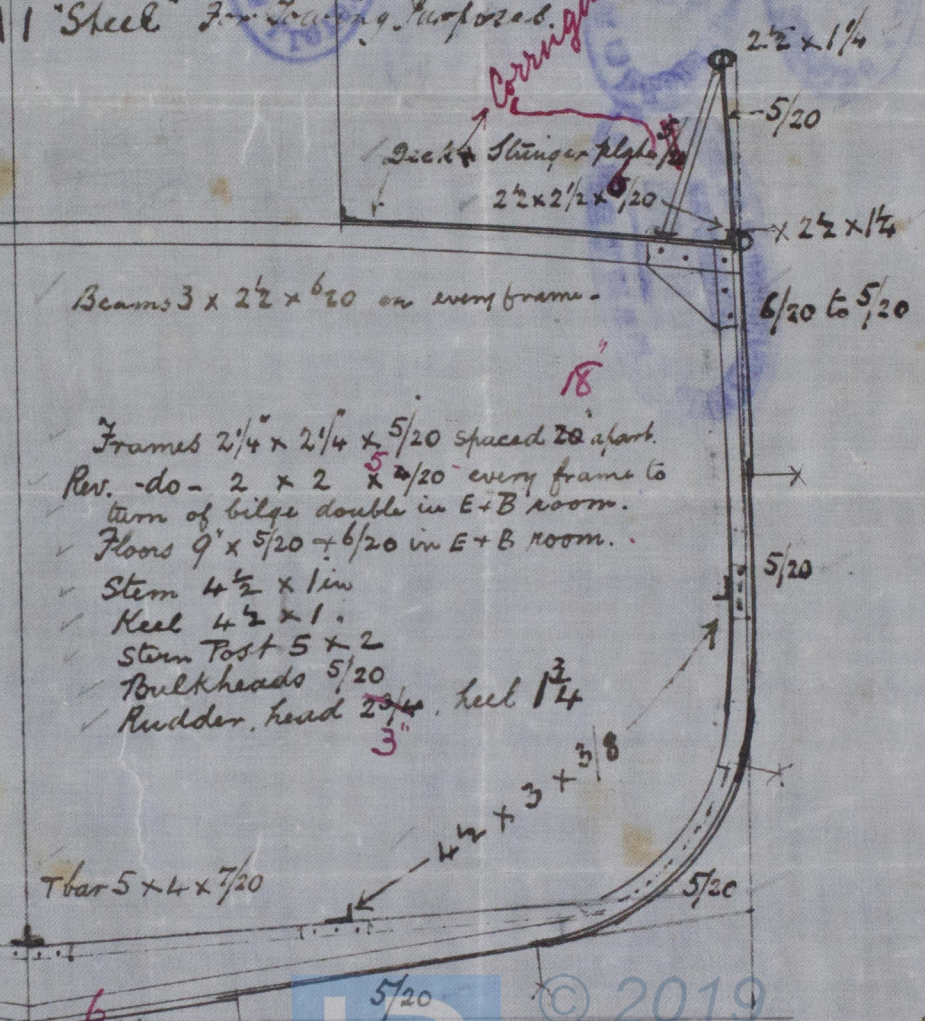 "Steel" For Towing Purposes.
Corrug
2½ x 1¼
5/20
Deck & Stringer plate
2½ x 2½ x 6/20
x 2½ x 1¼
Beams 3 x 2½ x 6/20 on every frame -
6/20 to 5/20
18"
Frames 2¼" x 2¼" x 5/20 spaced 20" apart.
5
Rev. -do- 2 x 2 x 4/20 every frame to
turn of bilge double in E+B room.
Floors 9" x 5/20 + 6/20 in E+B room.
5/20
Stem 4½ x 1 in
Keel 4½ x 1.
Stern Post 5 x 2
Bulkheads 5/20
Rudder. head 2¾. heel 1¾
3"
4½ x 3 x 3/8
T bar 5 x 4 x 7/20
5/20
5/20
6
© 2019